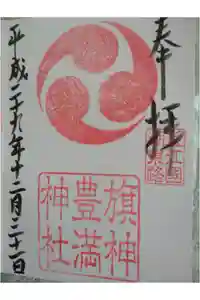 奉拝
旗神
豊満
神社
平成二十九年十二月三十一日